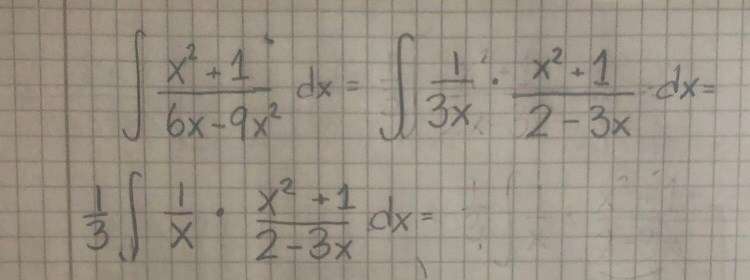 ∫ (x² + 1)/(6x - 9x²) dx = ∫ 1/(3x) · (x² + 1)/(2 - 3x) dx =
1/3 ∫ 1/x · (x² + 1)/(2 - 3x) dx =